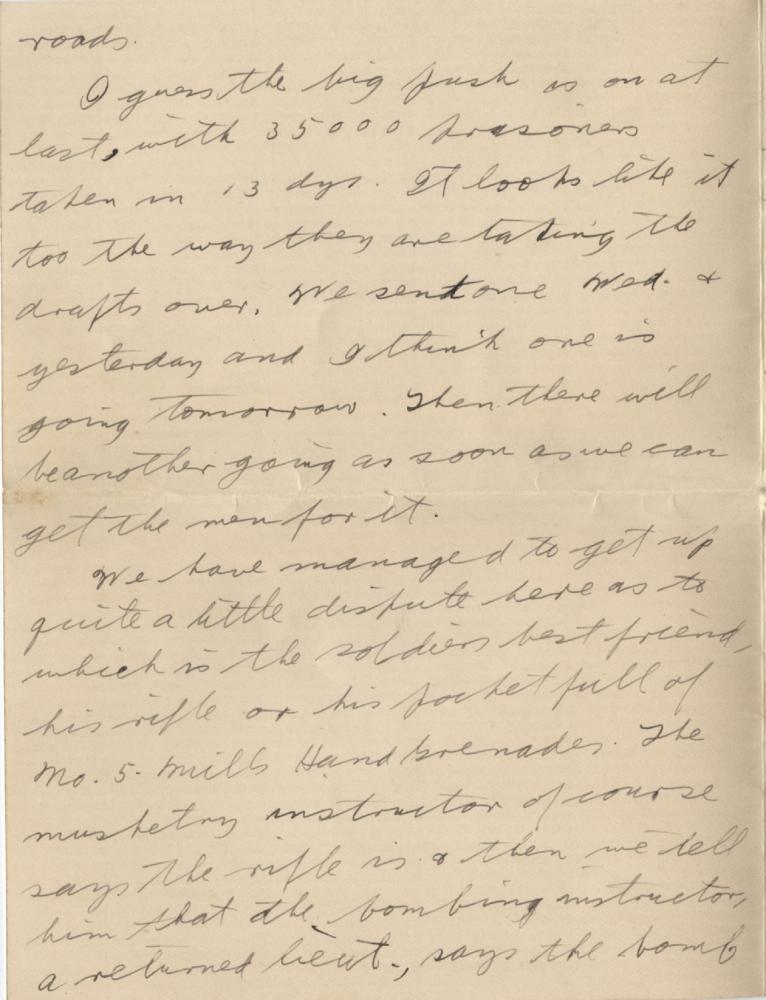 roads.
I guess the big push is on at
last, with 35000 prisoners
taken in 13 dys. It looks like it
too the way they are taking the
drafts over. We sent one Wed. &
yesterday and I think one is
going tomorrow. Then there will
be another going as soon as we can
get the men for it.
We have managed to get up
quite a little dispute here as to
which is the soldiers best friend,
his rifle or his pocket full of
No. 5. Mills Hand Grenades. The
musketry instructor of course
says the rifle is & then we tell
him that the bombing instructor,
a returned lieut., says the bomb